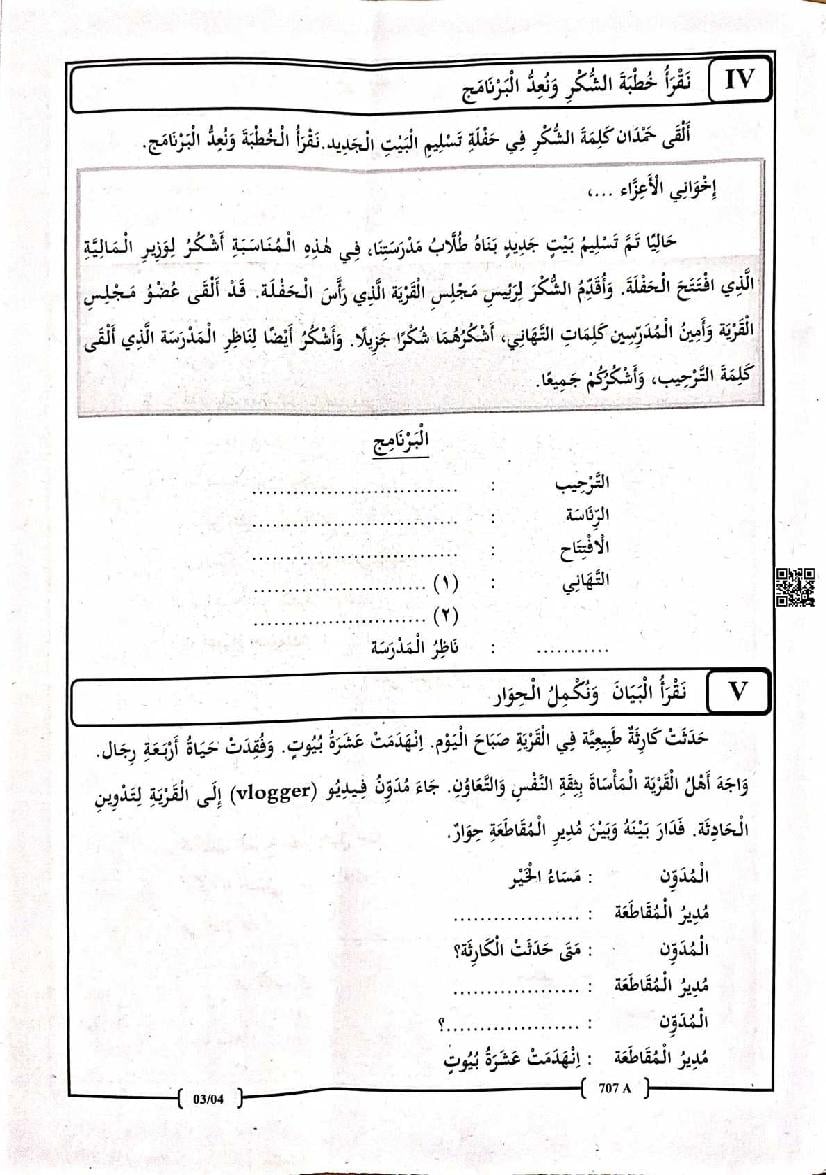 IV نَقْرَأُ خُطْبَةَ الشُّكْرِ وَنُعِدُّ الْبَرْنَامَج
أَلْقَى حَمْدَان كَلِمَةَ الشُّكْرِ فِي حَفْلَةِ تَسْلِيمِ الْبَيْتِ الْجَدِيد. نَقْرَأُ الْخُطْبَةَ وَنُعِدُّ الْبَرْنَامَج.
إِخْوَانِي الْأَعِزَّاء ...،
حَالِيًا تَمَّ تَسْلِيمُ بَيْتٍ جَدِيدٍ بَنَاهُ طُلَّابُ مَدْرَسَتِنَا، فِي هٰذِهِ الْمُنَاسَبَةِ أَشْكُرُ لِوَزِيرِ الْمَالِيَّةِ
الَّذِي افْتَتَحَ الْحَفْلَةَ. وَأُقَدِّمُ الشُّكْرَ لِرَئِيسِ مَجْلِسِ الْقَرْيَةِ الَّذِي رَأَّسَ الْحَفْلَة. قَدْ أَلْقَى عُضْوُ مَجْلِسِ
الْقَرْيَةِ وَأَمِينُ الْمُدَرِّسِين كَلِمَاتِ التَّهَانِي، أَشْكُرُهُمَا شُكْرًا جَزِيلًا. وَأَشْكُرُ أَيْضًا لِنَاظِرِ الْمَدْرَسَةِ الَّذِي أَلْقَى
كَلِمَةَ التَّرْحِيب، وَأَشْكُرُكُمْ جَمِيعًا.
الْبَرْنَامِج
التَّرْحِيب : ..............................
الرِّئَاسَة : ..............................
الْافْتِتَاح : ..............................
التَّهَانِي : (١) .........................
(٢) .........................
........... : نَاظِرُ الْمَدْرَسَة
V نَقْرَأُ الْبَيَانَ وَنُكْمِلُ الْحِوَار
حَدَثَتْ كَارِثَةٌ طَبِيعِيَّة فِي الْقَرْيَةِ صَبَاحَ الْيَوْم. اِنْهَدَمَتْ عَشَرَةُ بُيُوتٍ. وَفُقِدَتْ حَيَاةُ أَرْبَعَةِ رِجَال.
وَاجَهَ أَهْلُ الْقَرْيَة الْمَأْسَاةَ بِثِقَةِ النَّفْسِ وَالتَّعَاوُنِ. جَاءَ مُدَوِّنُ فِيدِيُو (vlogger) إِلَى الْقَرْيَةِ لِتَدْوِينِ
الْحَادِثَة. فَدَارَ بَيْنَهُ وَبَيْنَ مُدِيرِ الْمُقَاطَعَةِ حِوَارٌ.
الْمُدَوِّن : مَسَاءُ الْخَيْر
مُدِيرُ الْمُقَاطَعَة : ...................
الْمُدَوِّن : مَتَى حَدَثَتْ الْكَارِثَة؟
مُدِيرُ الْمُقَاطَعَة : ...................
الْمُدَوِّن : ....................؟
مُدِيرُ الْمُقَاطَعَة : اِنْهَدَمَتْ عَشَرَةُ بُيُوتٍ
707 A
03/04